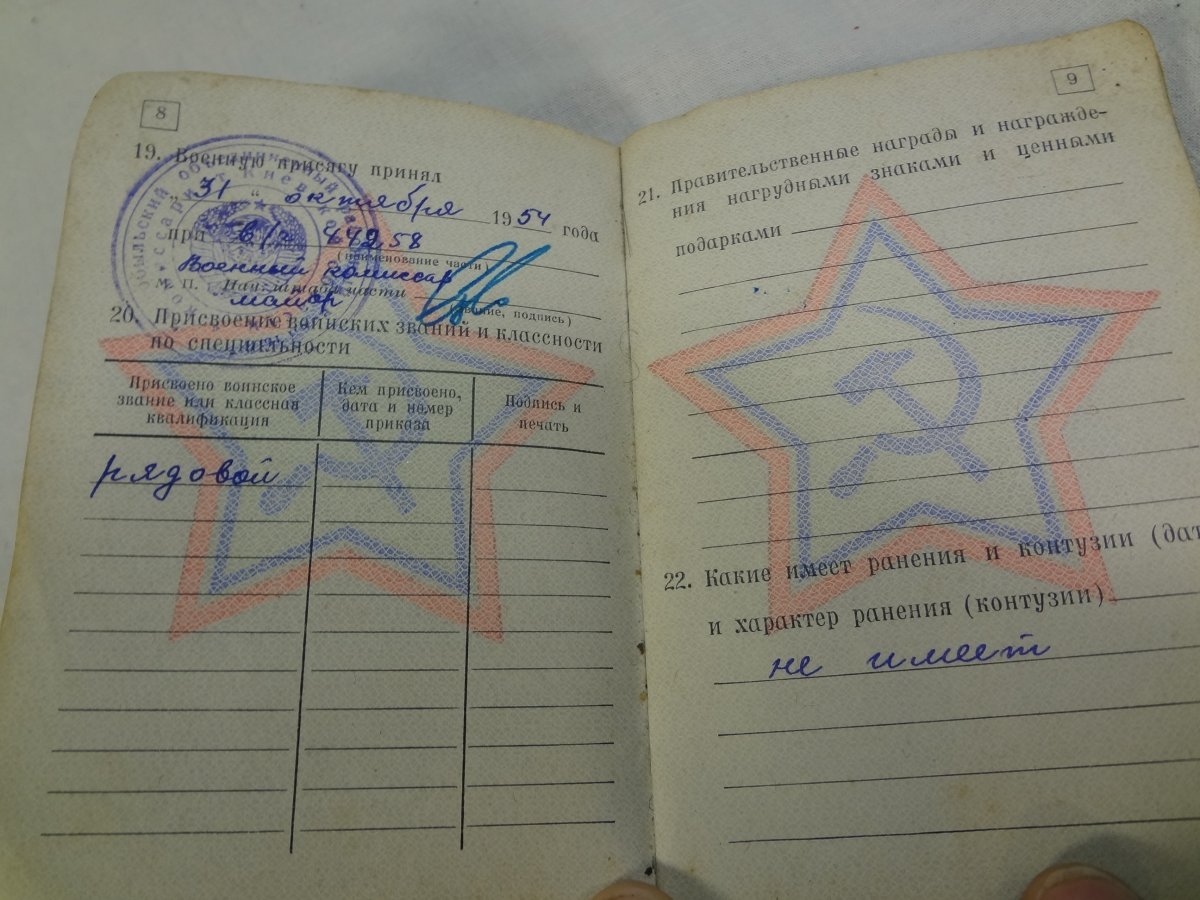 8
19. Военную присягу принял
„ 31 “ октября 1954 года
при в/ч 44258
(наименование части)
Военный комиссар
М. П. Нач. штаба части
майор
(звание, подпись)
20. Присвоение воинских званий и классности
по специальности
Присвоено воинское
звание или классная
квалификация
Кем присвоено,
дата и номер
приказа
Подпись и
печать
рядовой
9
21. Правительственные награды и награжде-
ния нагрудными знаками и ценными
подарками
22. Какие имеет ранения и контузии (дат
и характер ранения (контузии)
не имеет